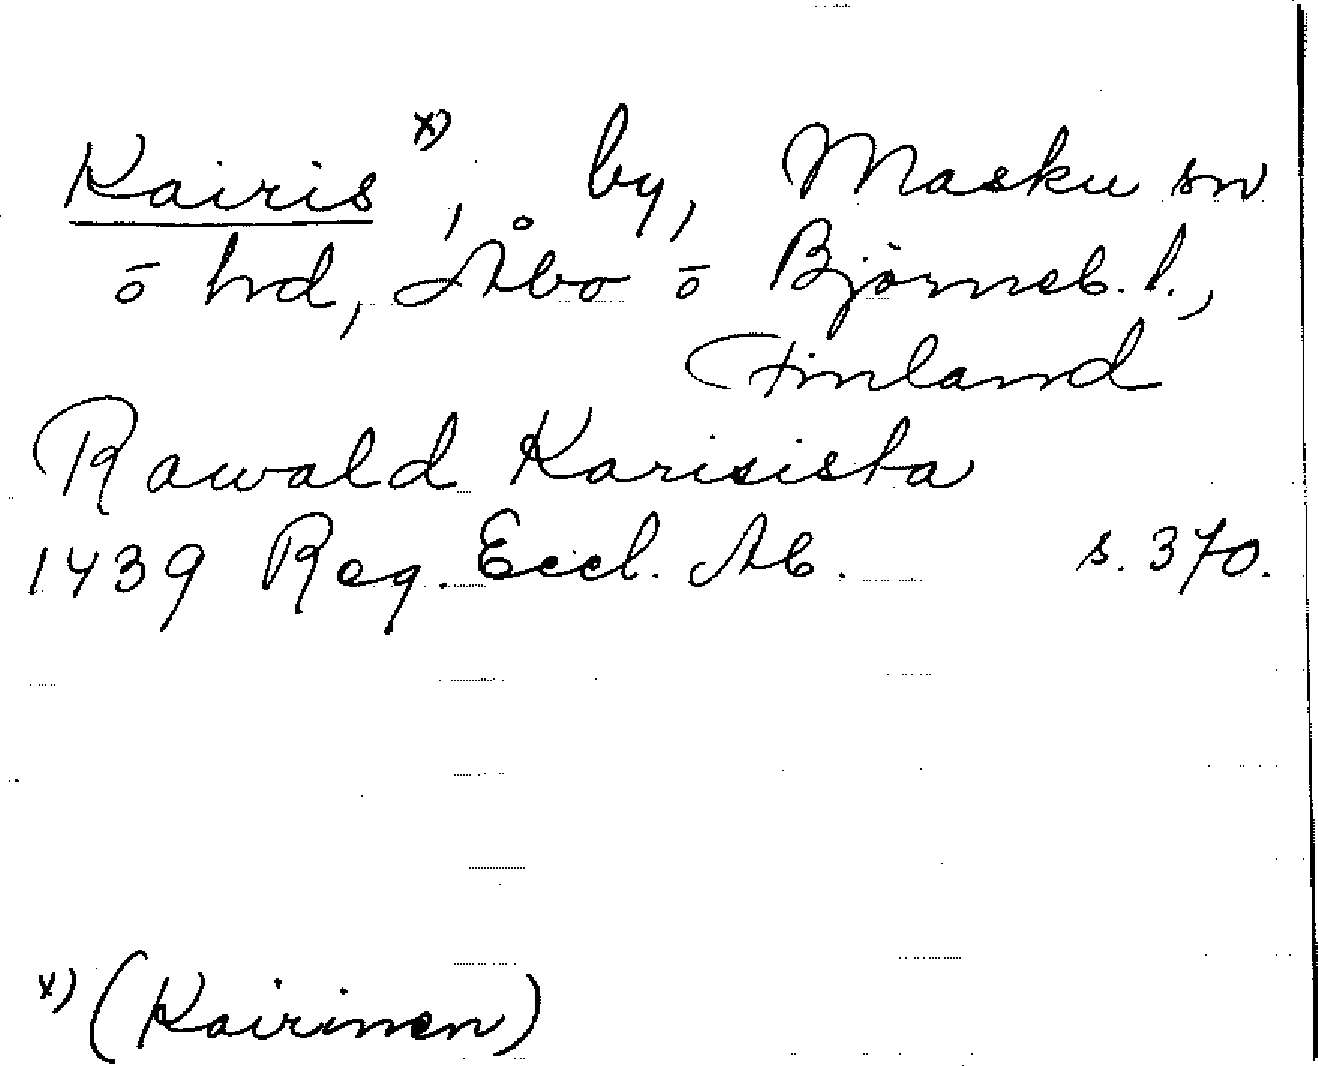 Kairis x), by, Masku sn
ō hd, Åbo ō Björneb. l.,
Finland
Rawald Karisista
1439 Reg. Eccl. Ab. s. 370.
x) (Kairinen)